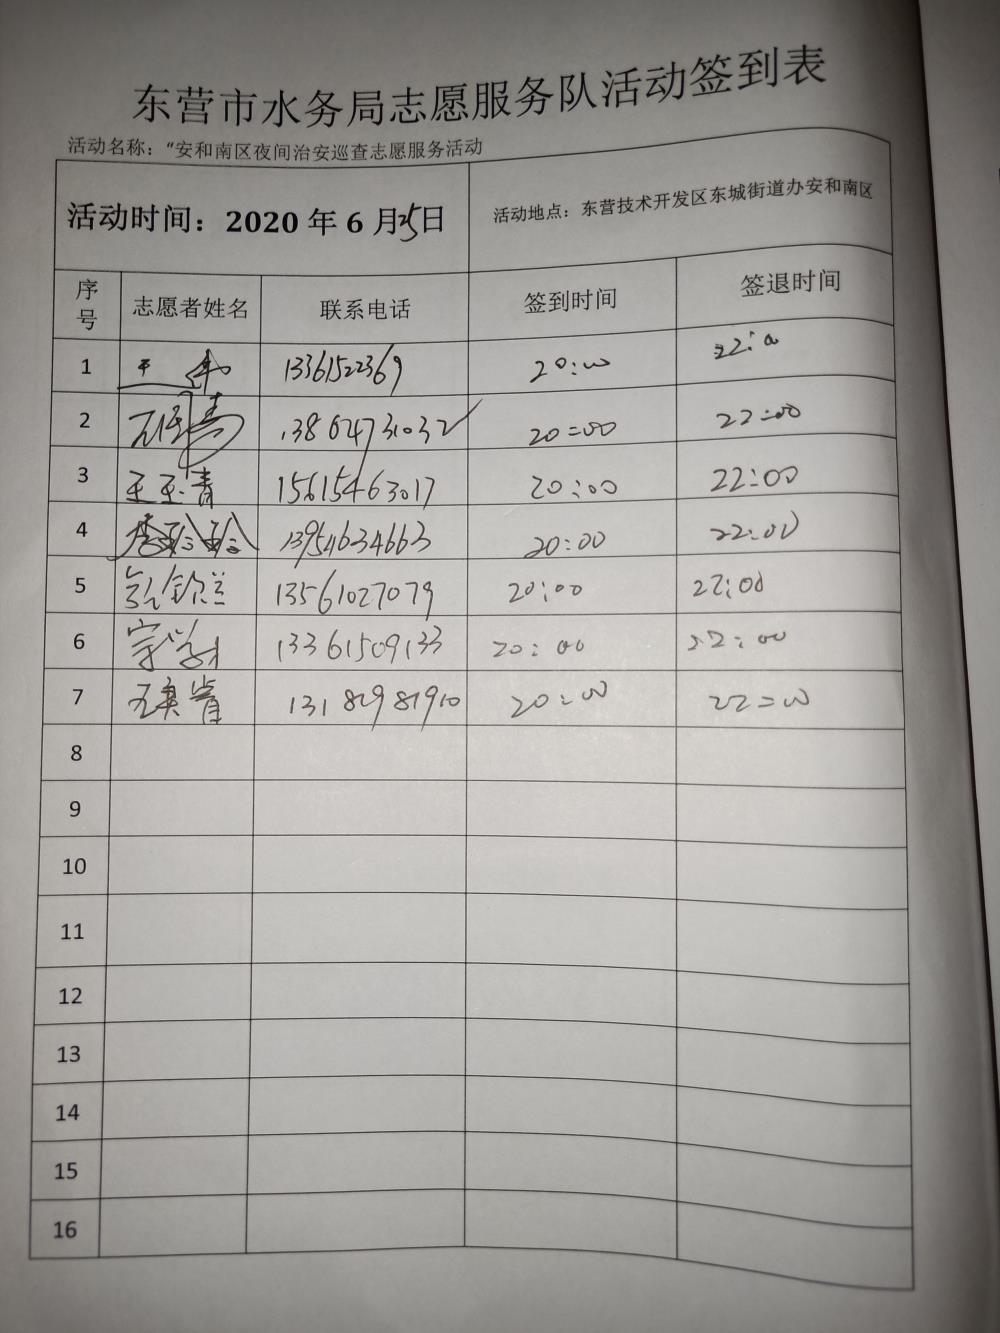 东营市水务局志愿服务队活动签到表
活动名称：“安和南区夜间治安巡查志愿服务活动
活动时间：2020 年 6 月25日 活动地点：东营技术开发区东城街道办安和南区
序号 志愿者姓名 联系电话 签到时间 签退时间
1 13361522369 20:00 22:00
2 13864731032 20:00 22:00
3 王玉青 15615463017 20:00 22:00
4 李玲玲 13954634663 20:00 22:00
5 13561027079 20:00 22:00
6 13361509133 20:00 22:00
7 13182981910 20:00 22:00
8
9
10
11
12
13
14
15
16